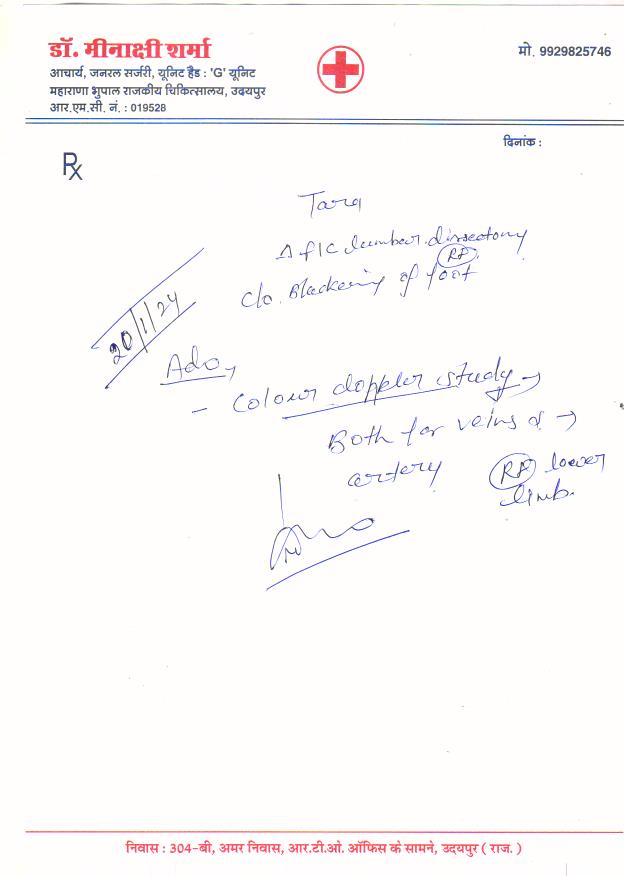 डॉ. मीनाक्षी शर्मा
आचार्य, जनरल सर्जरी, यूनिट हैड : 'G' यूनिट
महाराणा भुपाल राजकीय चिकित्सालय, उदयपुर
आर.एम.सी. नं. : 019528
मो. 9929825746
दिनांक :
Rx
Tara
lumber dissectomy
c/o. Blackening of foot
20/1/24
Adv,
- Colour doppler study
Both for veins &
artery lower
limb.
निवास : 304-बी, अमर निवास, आर.टी.ओ. ऑफिस के सामने, उदयपुर ( राज. )